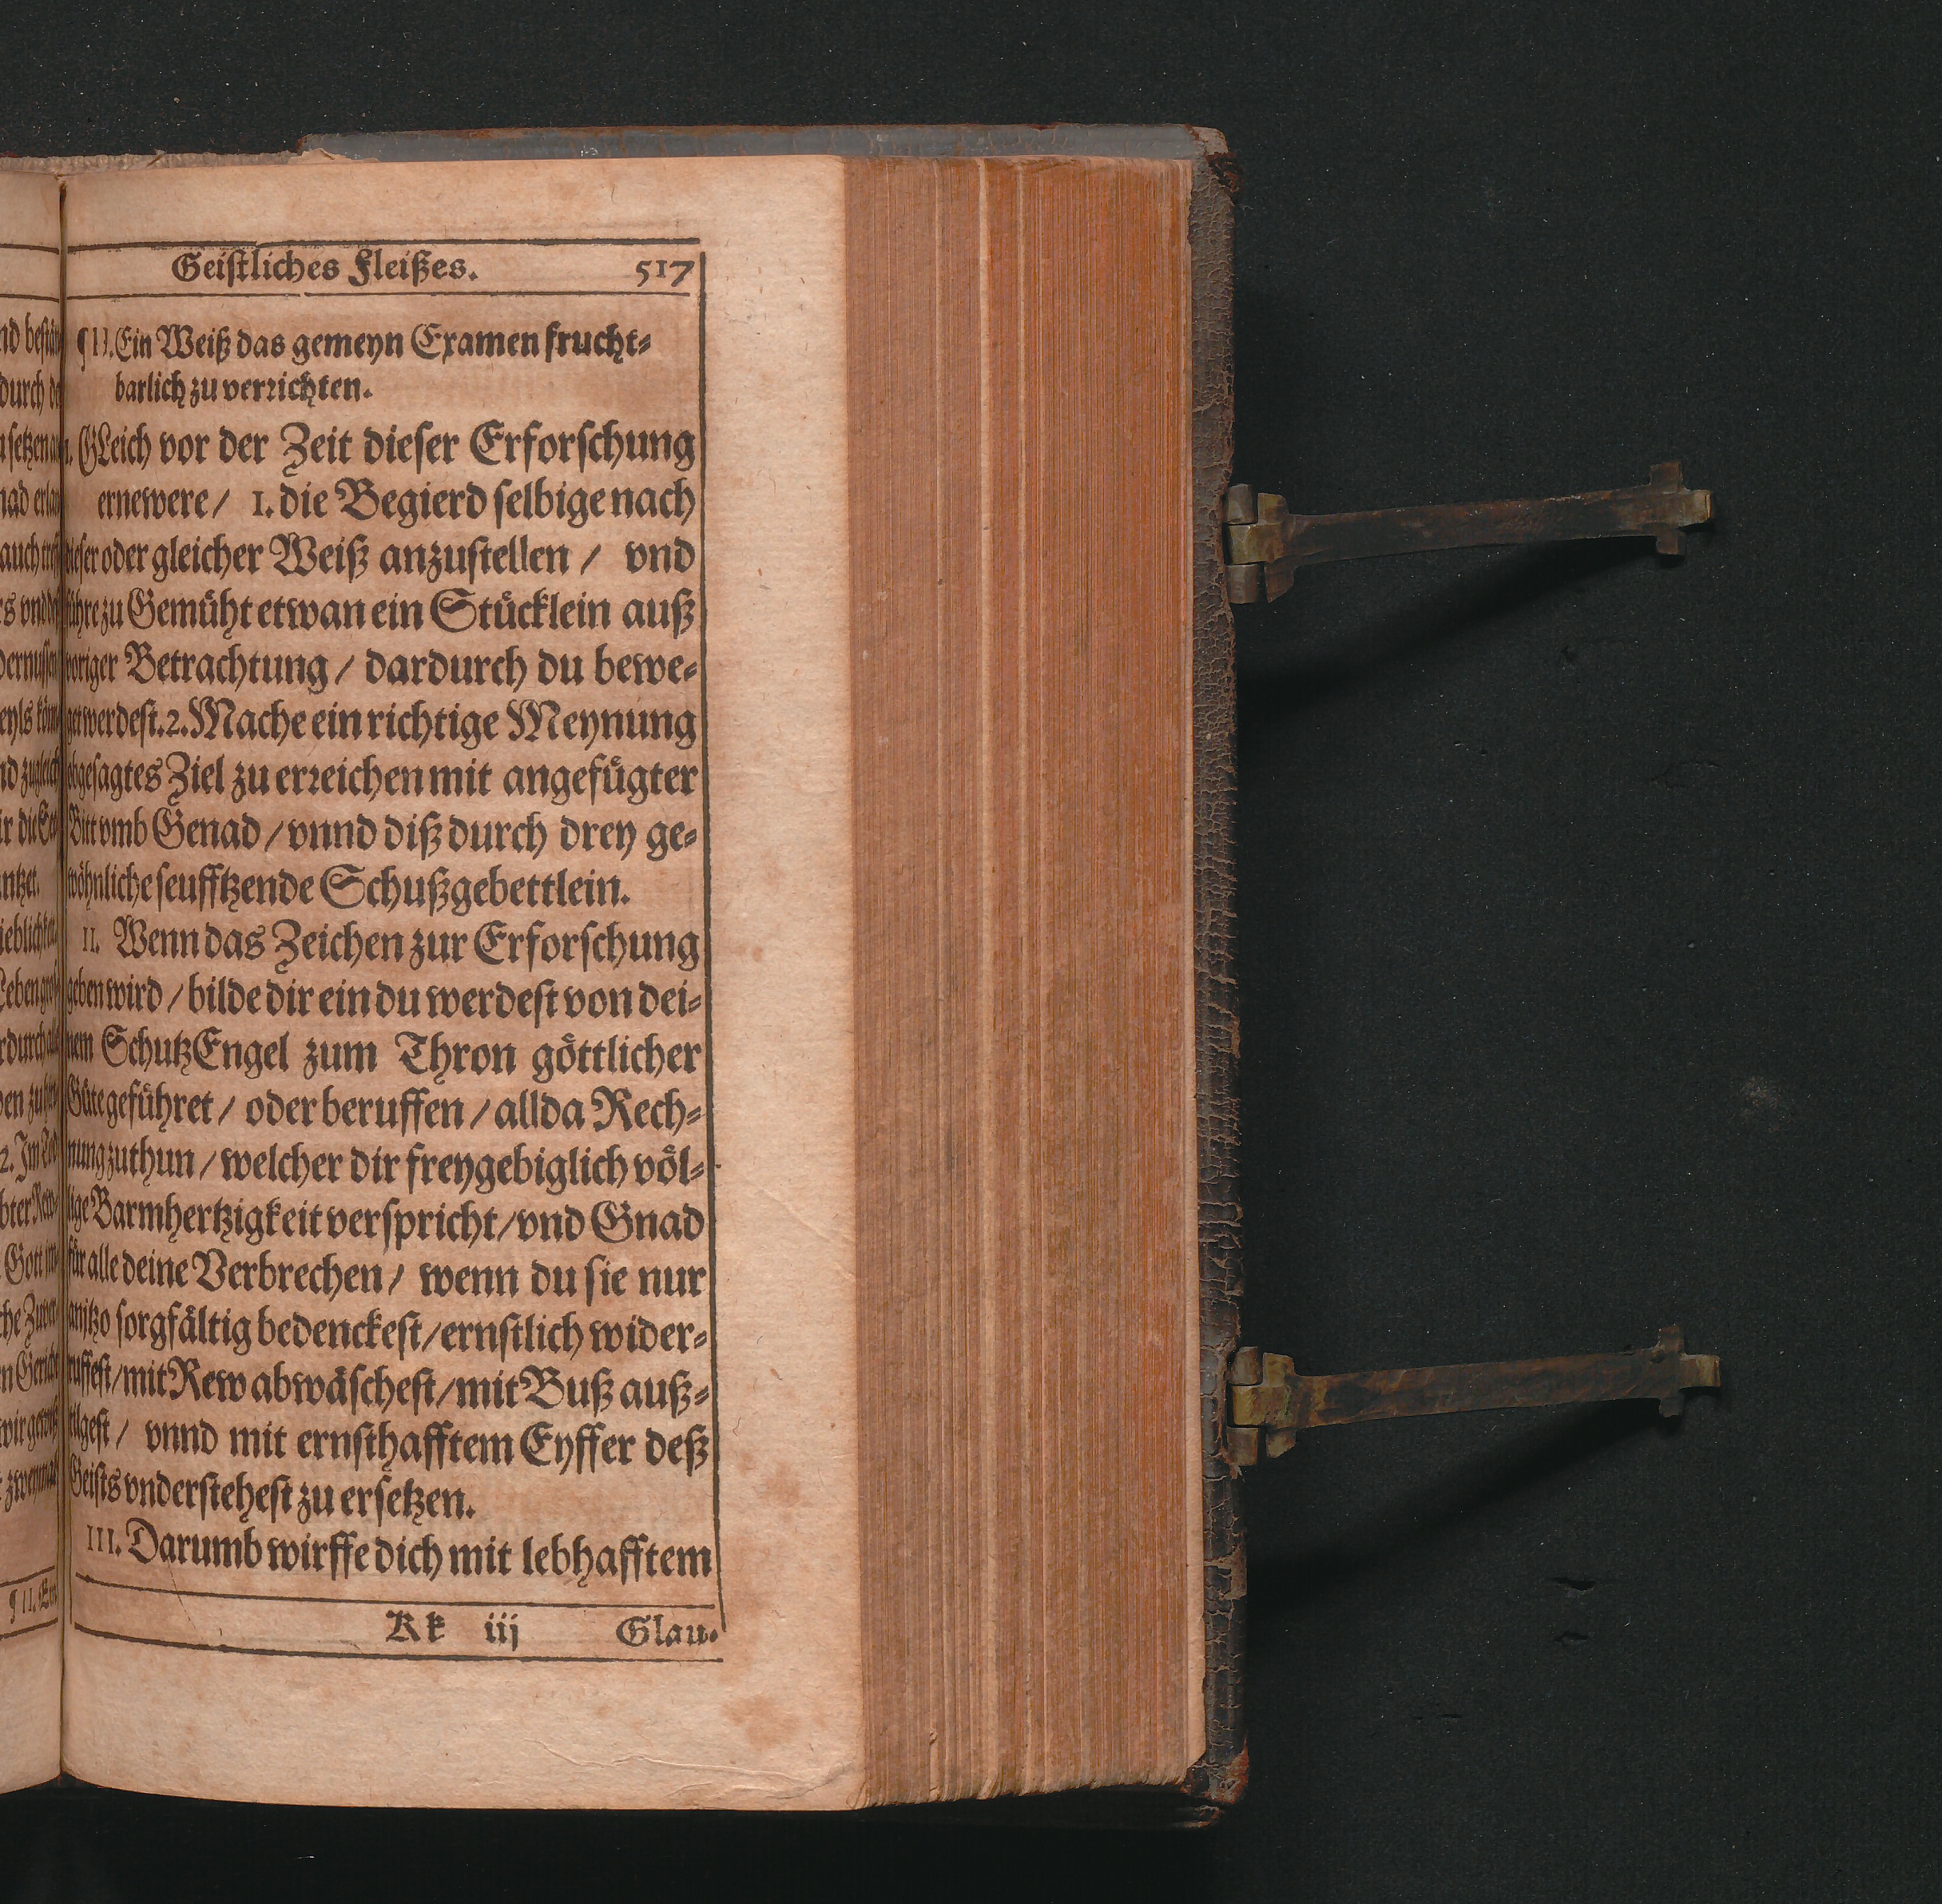 Geiſtliches Fleißes. 517
¶II. Ein Weiß das gemeyn Examen frucht⸗
barlich zu verꝛichten.
I. GLeich vor der Zeit dieſer Erforſchung
ernewere / 1. die Begierd ſelbige nach
dieſer oder gleicher Weiß anzuſtellen / vnd
führe zu Gemüht etwan ein Stücklein auß
voriger Betrachtung / dardurch du bewe⸗
get werdeſt. 2. Mache ein richtige Meynung
obgeſagtes Ziel zu erꝛeichen mit angefügter
Bitt vmb Genad / vnnd diß durch drey ge⸗
wöhnliche ſeufftzende Schußgebettlein.
II. Wenn das Zeichen zur Erforſchung
geben wird / bilde dir ein du werdeſt von dei⸗
nem SchutzEngel zum Thron göttlicher
Güte geführet / oder beruffen / allda Rech⸗
nung zuthun / welcher dir freygebiglich völ⸗
lige Barmhertzigkeit verſpricht / vnd Gnad
für alle deine Verbrechen / wenn du ſie nur
anjtzo ſorgfältig bedenckeſt / ernſtlich wider⸗
ruffeſt / mit Rew abwäſcheſt / mit Buß auß⸗
tilgeſt / vnnd mit ernſthafftem Eyffer deß
Geiſts vnderſteheſt zu erſetzen.
III. Darumb wirffe dich mit lebhafftem
Kk iij Glau⸗